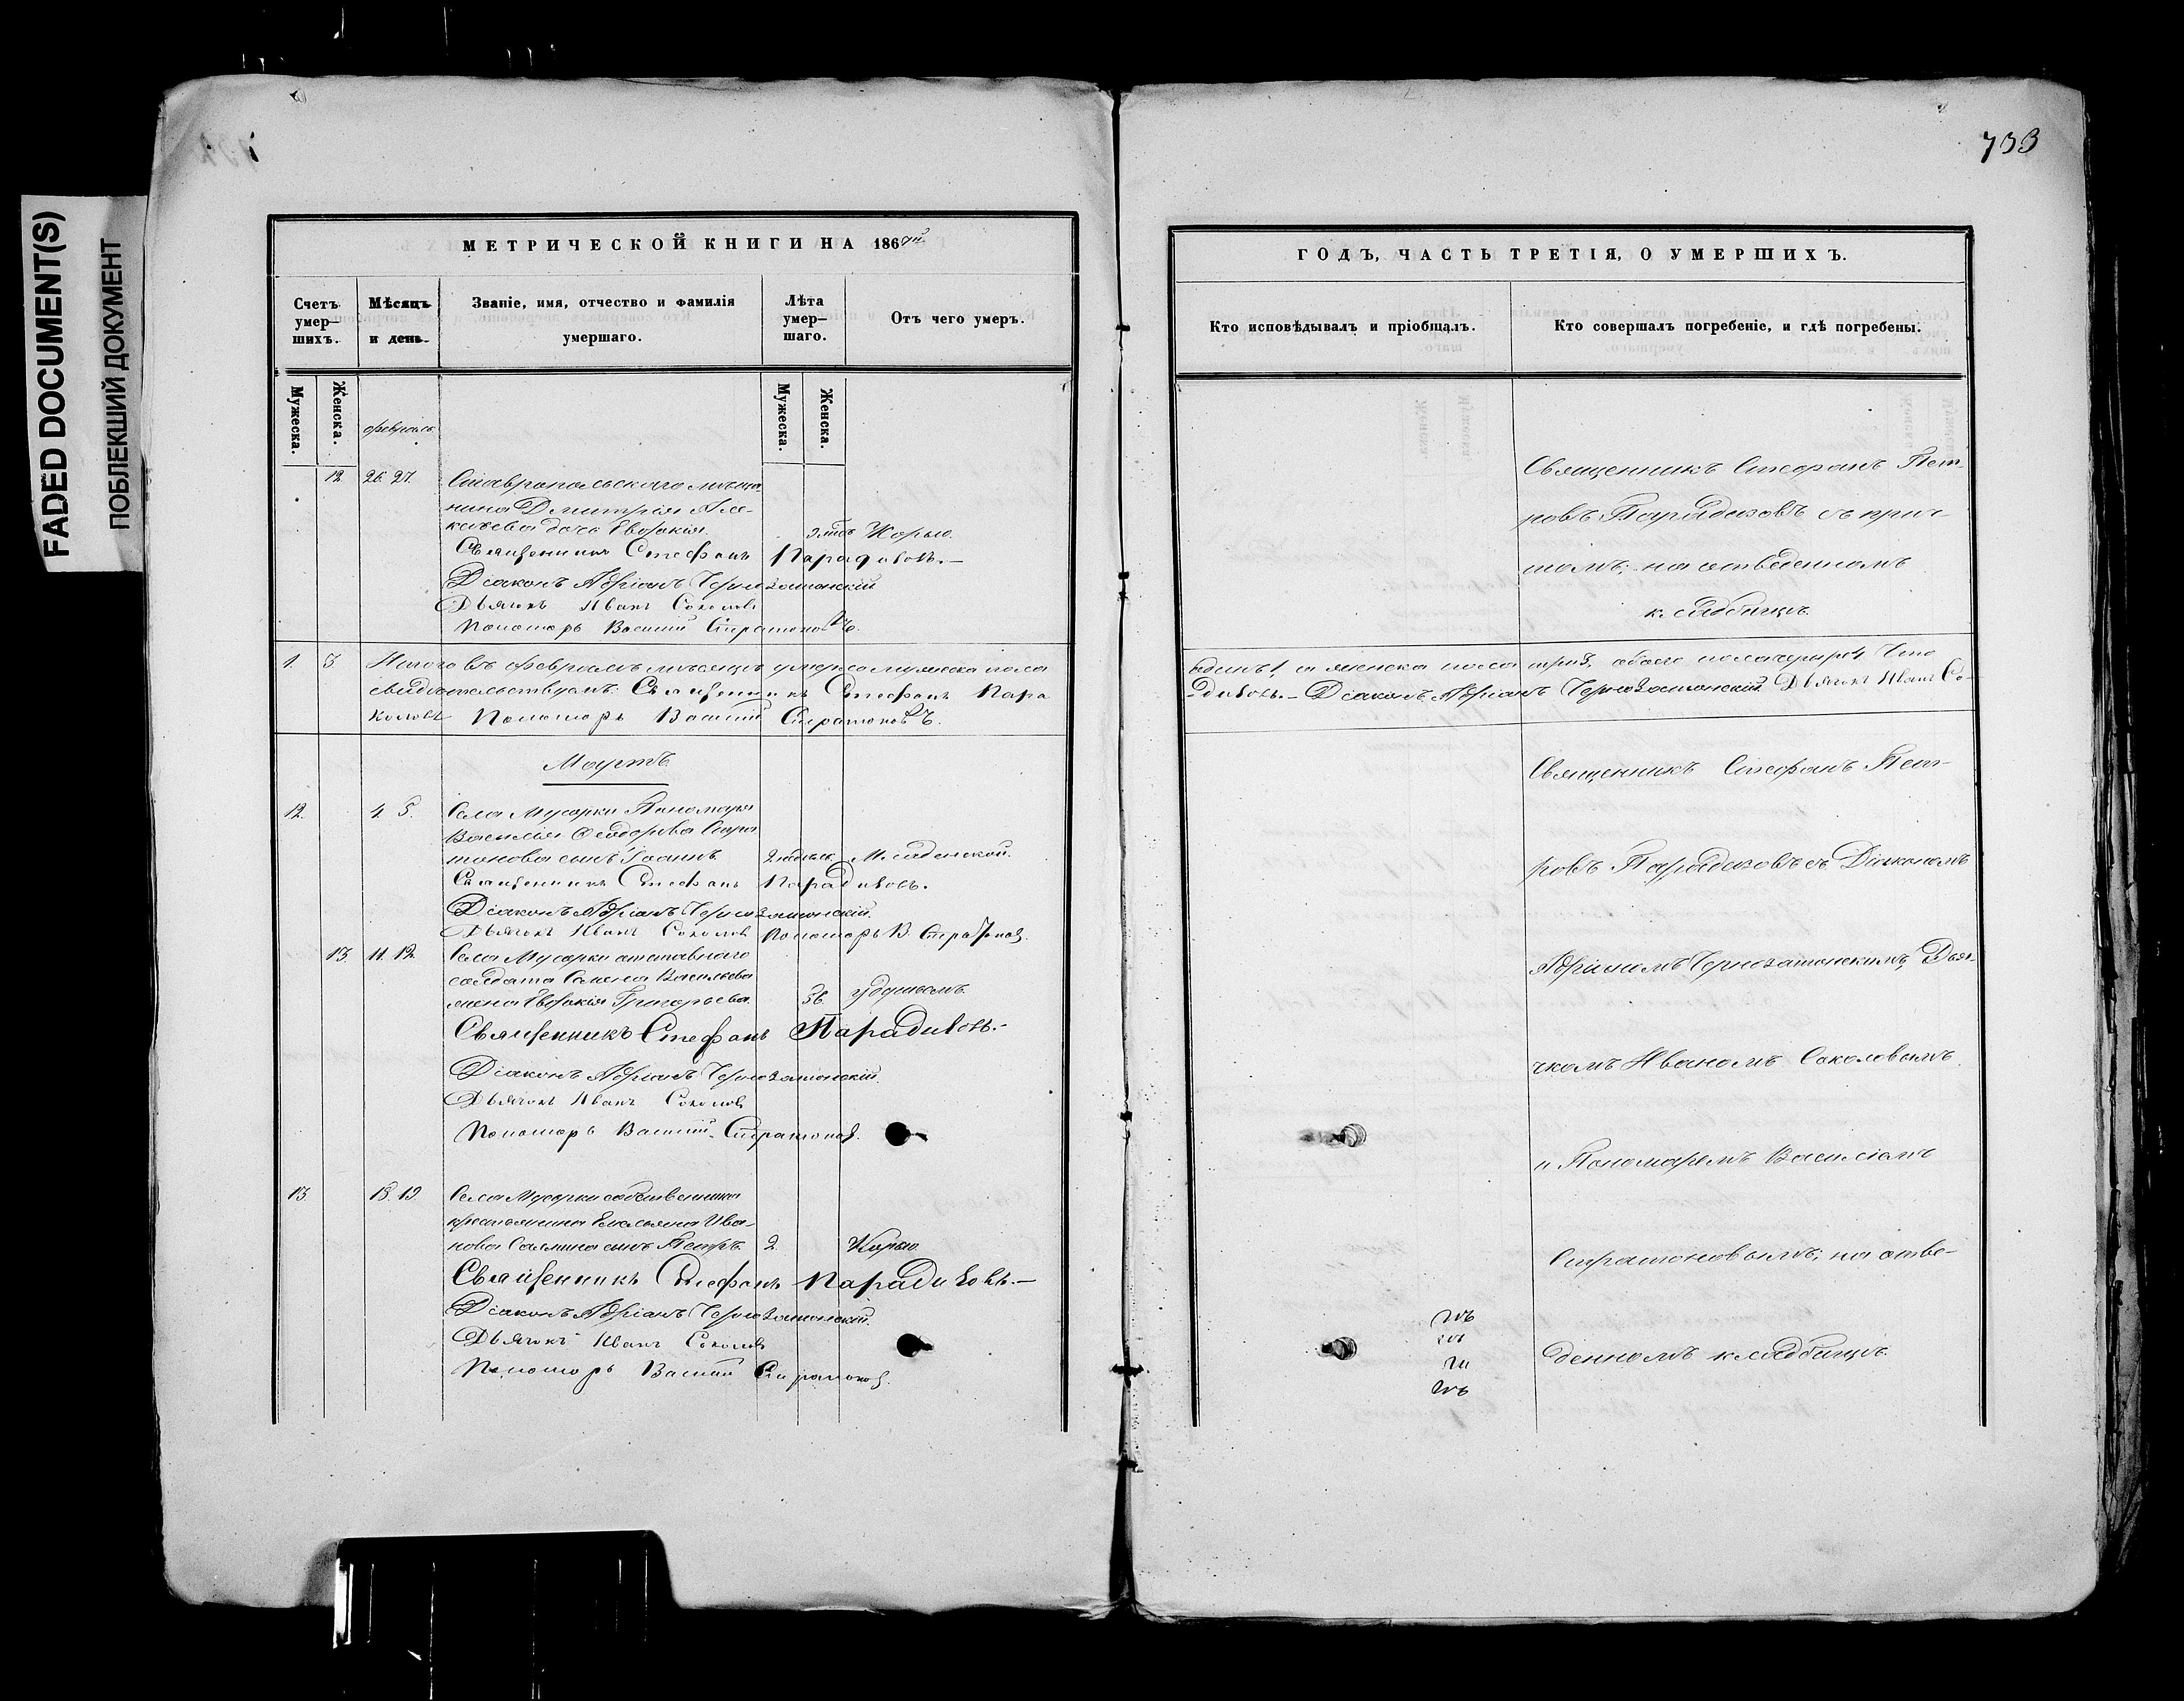 FADED DOCUMENT(S)
ПОБЛЕКШИЙ ДОКУМЕНТ
733
МЕТРИЧЕСКОЙ КНИГИ НА 186
Счетъ умер-шихъ.
Мѣсяцъ и день.
Званіе, имя, отчество и фамилія умершаго.
Лѣта умер-шаго.
Отъ чего умеръ.
Мужеска.
Женска.
Мужеска.
Женска.
февраль
12 26. 27. Ставропольскаго мѣща-
нина Дмитрія Але-
дочь Евдокія Корью.
Священникъ Стефанъ Парадизовъ.–
Діаконъ Адріанъ Чернозатонскій
Дьячокъ Иванъ Соколовъ
Пономарь Василій Стратоновъ.
1. 3 Итого въ февралѣ мѣсяцѣ умерло мужеска пола
свидѣтельствуемъ: Священникъ Стефанъ Пара
коловъ Пономарь Василій Стратоновъ.
Мартъ
12. 4. 5. Села Мусорки Пономаря
Василія Ѳеодорова Стра-
тонова сынъ Іоаннъ Младенской.
Священникъ Стефанъ Парадизовъ.
Діаконъ Адріанъ Чернозатонскій.
Дьячокъ Иванъ Соколовъ Пономарь В. Стратоновъ.
13. 11. 12. Села Мусорки отставнаго
солдата Семена Васильева
жена Евдокія Григорьева 56. удушьемъ.
Священникъ Стефанъ Парадизовъ.–
Діаконъ Адріанъ Чернозатонскій.
Дьячокъ Иванъ Соколовъ
Пономарь Василій Стратоновъ.
13. 18. 19. Села Мусорки собственника
крестьянина Емельяна Ива-
нова сынъ Петръ. 2. Корью.
Священникъ Стефанъ Парадизовъ.–
Діаконъ Адріанъ Чернозатонскій.
Дьячокъ Иванъ Соколовъ
Пономарь Василій Стратоновъ.
ГОДЪ, ЧАСТЬ ТРЕТІЯ, О УМЕРШИХЪ.
Кто исповѣдывалъ и пріобщалъ.
Кто совершалъ погребеніе, и гдѣ погребены.
Священникъ Стефанъ Пет-
ровъ Парадизовъ съ прич-
томъ; на отведенномъ
кладбищѣ.
одинъ 1, а женска пола три 3, обоего пола четыре 4 Что
дизовъ.– Діаконъ Адріанъ Чернозатонскій. Дьячокъ Иванъ Со-
Священникъ Стефанъ Пет-
ровъ Парадизовъ съ Діакономъ
Адріаномъ Чернозатонскимъ, Дья-
чкомъ Иваномъ Соколовымъ
и Пономаремъ Василіемъ
Стратоновымъ; на отве-
денномъ кладбищѣ.